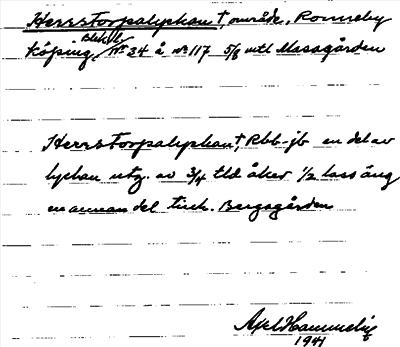 Herrstorpalyckan †, område, Ronneby
Köping, Blek. l. Nr 34 å nr 117 5/8 mtl Massagården
Herrstorpalyckan †, Rbb-jb en del av
lyckan utg. av 3/4 tld åker 1/2 lass äng
en annan del tich. Bergsgården
Axel Hammelig
1941